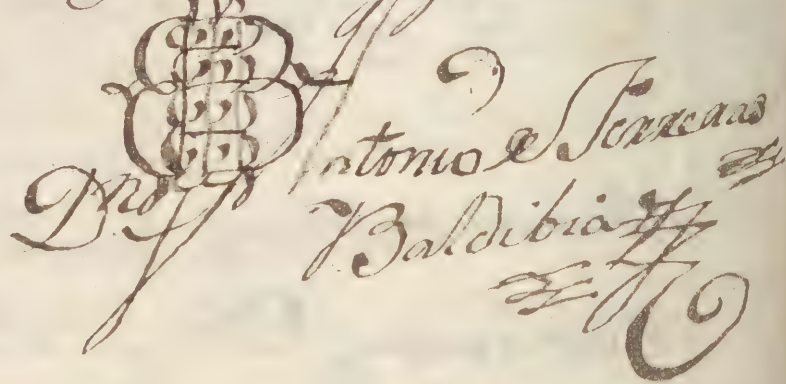 Dn Antonio de Terreros
Baldibia